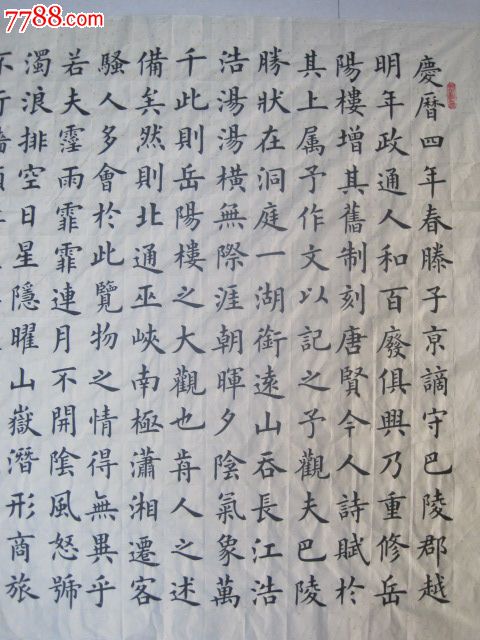 7788.com
慶曆四年春滕子京謫守巴陵郡越
明年政通人和百廢俱興乃重修岳
陽樓增其舊制刻唐賢今人詩賦於
其上属予作文以記之予觀夫巴陵
勝狀在洞庭一湖銜遠山吞長江浩
浩湯湯橫無際涯朝暉夕陰氣象萬
千此則岳陽樓之大觀也前人之述
備矣然則北通巫峽南極瀟湘遷客
騷人多會於此覽物之情得無異乎
若夫霪雨霏霏連月不開陰風怒號
濁浪排空日星隱曜山嶽潛形商旅
不行